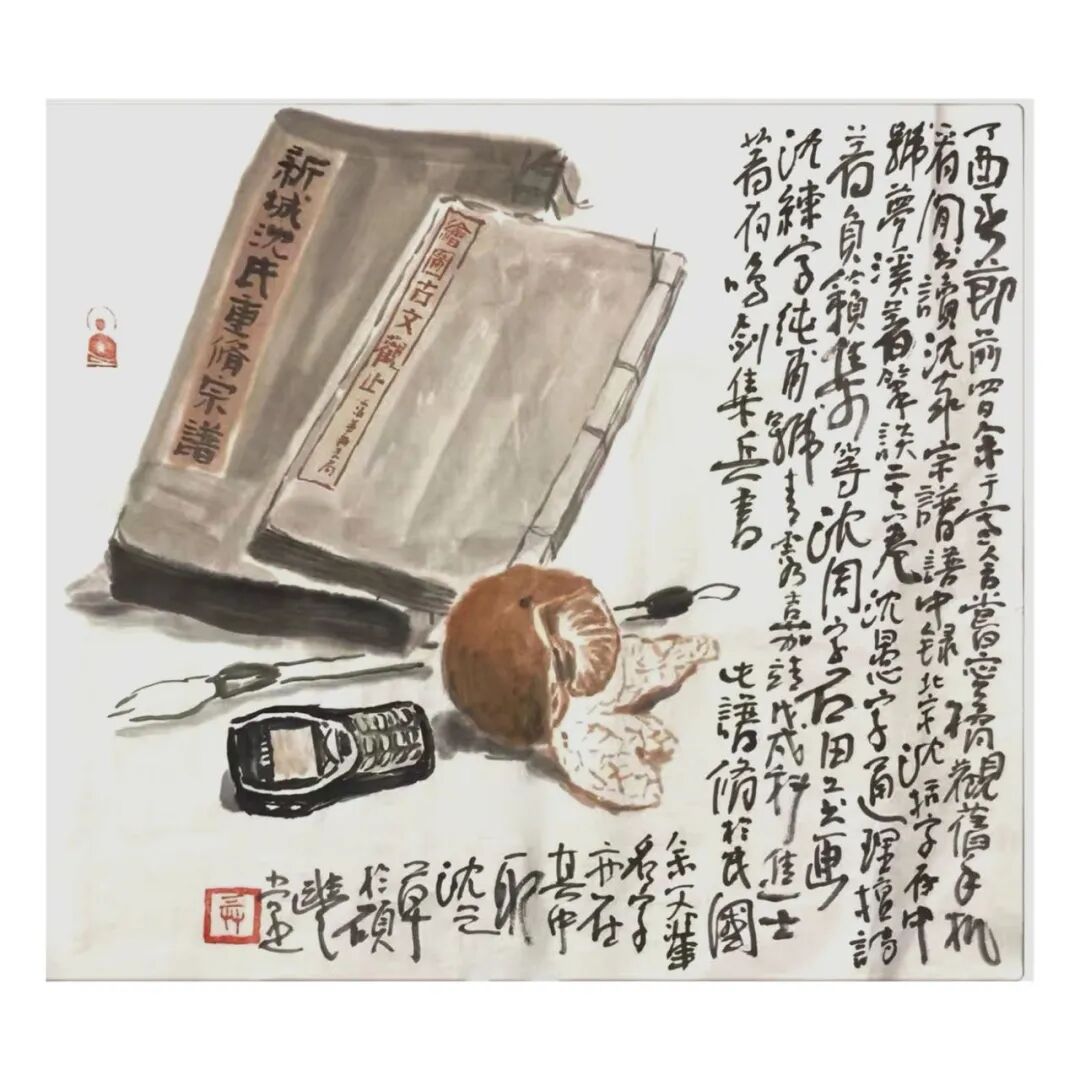 新城沈氏重脩宗譜
繪圖古文觀止
丁酉春節前四日余于家舍嘗蜜橘觀舊手机
看閒书讀沈家宗譜譜中録北宋沈括字存中
號夢溪著筆談二十六卷沈愚字通理擅詩
著負籟集等沈周字石田工书画
沈練字純甫號青霞乃嘉靖戊戌科進士
著有鳴劍集兵書此譜修於民國
余父輩
名字
亦在
其中
耶
沈之
草
於碩
豐
堂